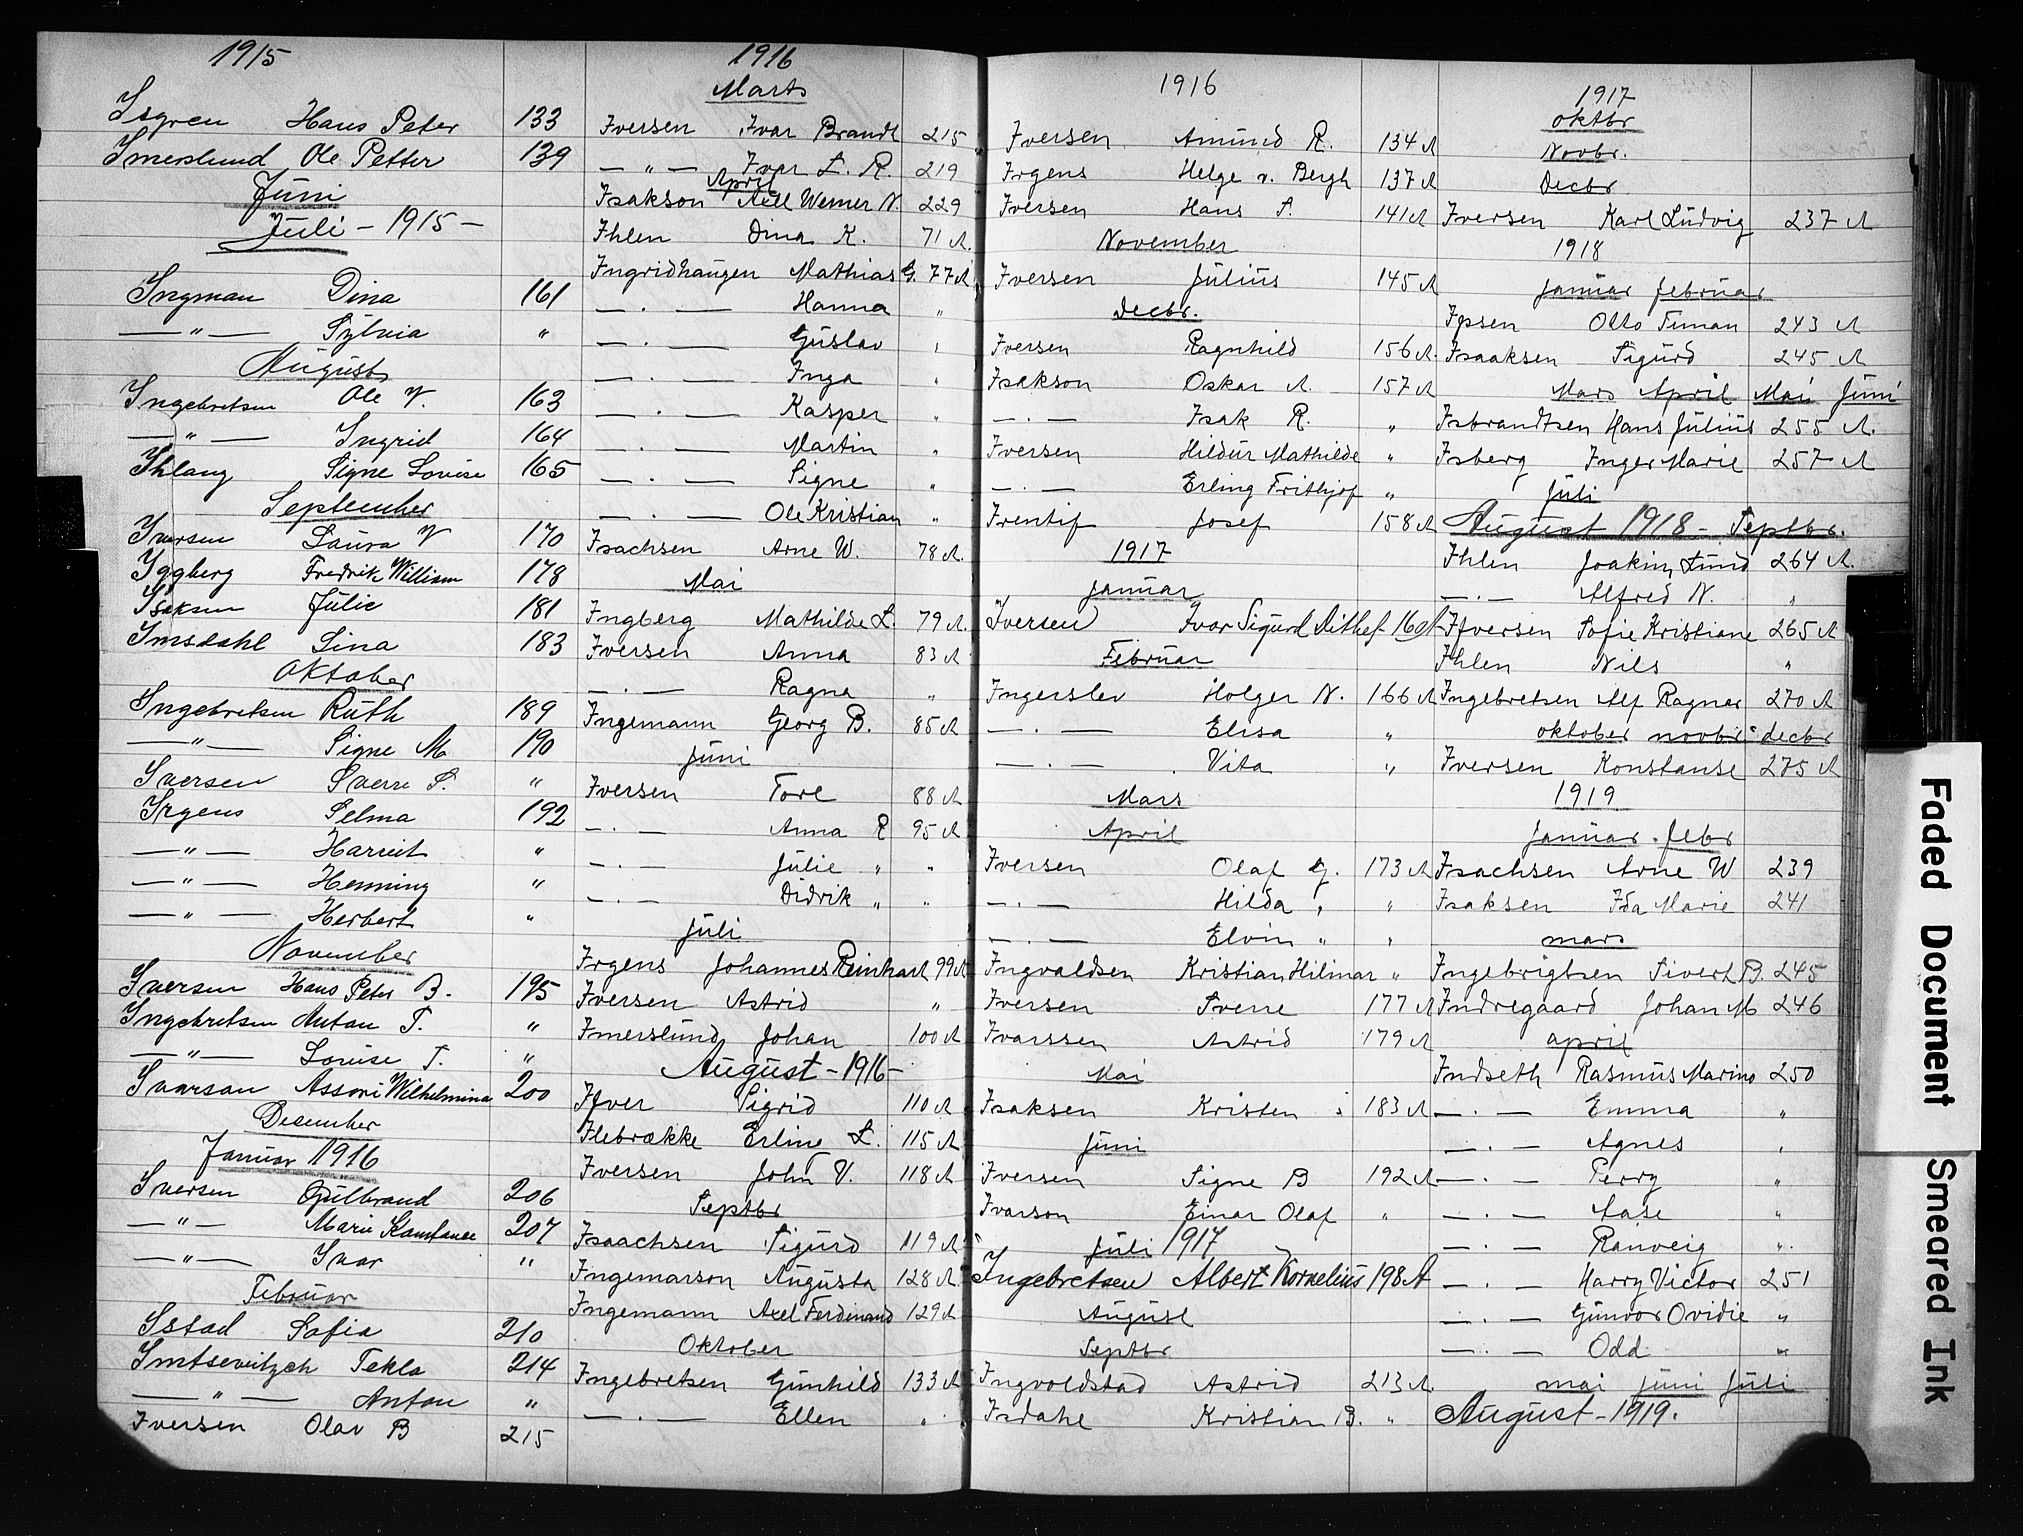 1915
Isgren Hans Peter 133
Imerslund Ole Petter 139
Juni
Juli - 1915 -
Ingman Dina 161
— " — Sylvia "
August
Ingebretsen Ole V. 163
— " — Ingrid 164
Ihlang Signe Lovise 165
September
Iversen Laura V 170
Iggberg Fredrik William 178
Isaksen Julie 181
Imsdahl Lina 183
Oktober
Ingebretsen Ruth 189
— " — Signe M. 190
Iversen Sverre S. "
Irgens Selma 192
— " — Harriet "
— " — Henning "
— " — Herbert "
November
Iversen Hans Peter B. 195
Ingebretsen Anton T. "
— " — Louise T. "
Ivarsan Assori Wilhelmina 200
Desember
Januar 1916
Iversen Gulbrand 206
— " — Marie Konstanse 207
— " — Ivar "
Februar
Istad Sofie 210
Imtsevitzch Tekla 214
— " — Anton "
Iversen Olav B 215
1916
Marts
Iversen Ivar Brandt 215
— " — Ivar L. R. 219
April
Isakson Axel Werner N. 229
Ihlen Dina K. 71 A.
Ingridhaugen Mathias G. 77 A
— . — Hanna "
— . — Gustav "
— . — Inga "
— . — Kasper "
— . — Martin "
— . — Signe "
— . — Ole Kristian "
Isachsen Arne W. 78 A.
Mai
Ingberg Mathilde L. 79 A.
Iversen Anna 83 A
— . — Ragna "
Ingemann Georg B. 85 A
Juni
Iversen Tore 88 A
— . — Anna R 95 A
— . — Julie " "
— . — Didrik " "
Juli
Irgens Johannes Reinhart 99 A
Iversen Astrid "
Imerslund Johan 100 A
August - 1916 -
Ifver Sigrid 110 A
Ilebrække Erline L. 115 A
Iversen John V. 118 A
Septbr
Isaachsen Sigurd 119 A
Ingemarson Augusta 128 A
Ingemann Axel Ferdinand 129 A
Oktober
Ingebretsen Gunhild 133 A
— . — Ellen "
1916
Iversen Amund R. 134 A
Irgens Helge v. Bergh 137 A
Iversen Hans S. 141 A
November
Iversen Julius 145 A
Decbr.
Iversen Ragnhild 156 A.
Isakson Oskar A. 157 A
— . — Isak R. "
Iversen Hildur Mathilde "
— . — Erling Frithjof "
Irentif Josef 158 A
1917
Januar
Iversen Ivar Sigurd Ditlef 160 A
Februar
Ingerslev Holger N. 166 A
— . — Elisa "
— . — Vita "
Mars
April
Iversen Olaf G. 173 A
— . — Hilda " "
— . — Elvin " "
Ingvaldsen Kristian Hilmar "
Iversen Svene 177 A
Ivarssen Astrid 179 A
Mai
Isaksen Kristen 183 A
Juni
Iversen Signe B 192 A
Ivarson Einar Olaf "
Juli 1917
Ingebretsen Albert Kornelius 198 A
August
Septbr
Ingvoldstad Astrid 213 A.
Isdahl Kristian B. "
1917
oktbr
Novbr.
Decbr
Iversen Karl Ludvig 237 A
1918
januar februar
Ipsen Otto Timan 243 A
Isaaksen Sigurd 245 A
Mars April Mai Juni
Isbrandtsen Hans Julius 255 A.
Isberg Inger Marie 257 A
Juli
August 1918 - Septbr.
Ihlen Joakim Lund 264 A.
— . — Alfred N. "
Ifversen Sofie Kristiane 265 A
Ihlen Nils "
Ingebretsen Alf Ragnar 270 A
oktober novbr decbr
Iversen Konstanse 275 A
1919
januar. febr
Isachsen Arne W 239
Isaksen Ida Marie 241
mars
Ingebrigtsen Sivert B. 245
Indregaard Johan M 246
april
Indseth Rasmus Marino 250
— . — Emma "
— . — Agnes "
— . — Perry "
— . — Aase "
— . — Ranveig "
— . — Harry Victor 251
— . — Gunvor Ovidie "
— . — Odd "
mai juni juli
August - 1919.
Faded Document
Smeared Ink